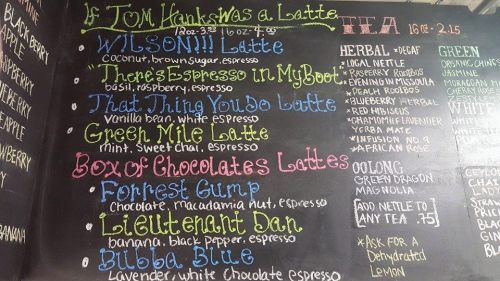 BLACK BERRY
APPLE
BANANA
If Tom Hanks Was a Latte
12oz-3.75 16oz-4.00
WILSON!!! Latte
coconut, brown sugar, espresso
"There's Espresso in My Boot"
basil, raspberry, espresso
That Thing You Do Latte
Vanilla bean, white espresso
Green Mile Latte
mint, sweet chai, espresso
Box of Chocolates Lattes
Forrest Gump
Chocolate, macadamia nut, espresso
Lieutenant Dan
banana, black pepper, espresso
Bubba Blue
Lavender, white chocolate espresso
TEA 16oz - 2.15
HERBAL * DECAF
* LOCAL NETTLE
* RASPBERRY ROOIBOS
* EVENING IN MISSOULA
* PEACH ROOIBOS
* BLUEBERRY HERBAL
* RED HIBISCUS
* CHAMOMILE LAVENDER
YERBA MATE
* INFUSION NO. 9
* AFRICAN ROSE
OOLONG
GREEN DRAGON
MAGNOLIA
ADD NETTLE TO
ANY TEA .75
* ASK FOR A
Dehydrated
LEMON
GREEN
ORGANIC CHINES
JASMINE
MOROCCAN
CHERRY ROSE
WHITE